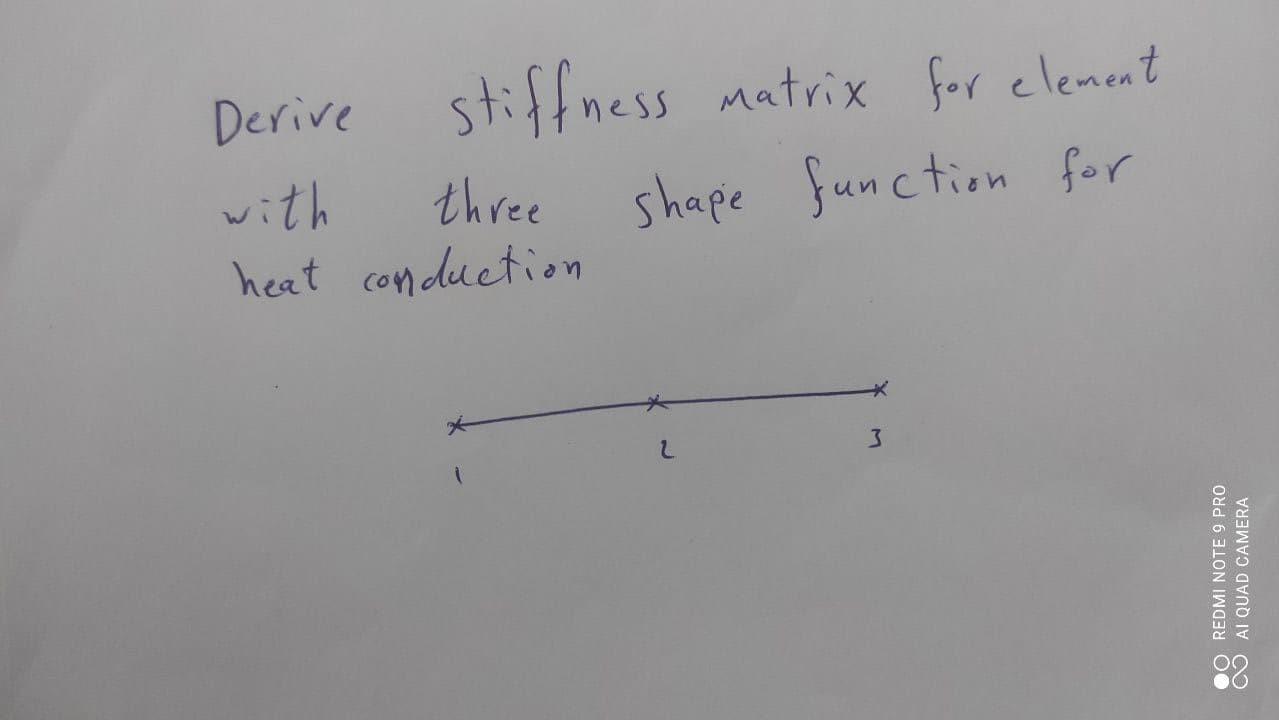 Derive stiffness matrix for element
with three shape function for
heat conduction
1 2 3
REDMI NOTE 9 PRO
AI QUAD CAMERA